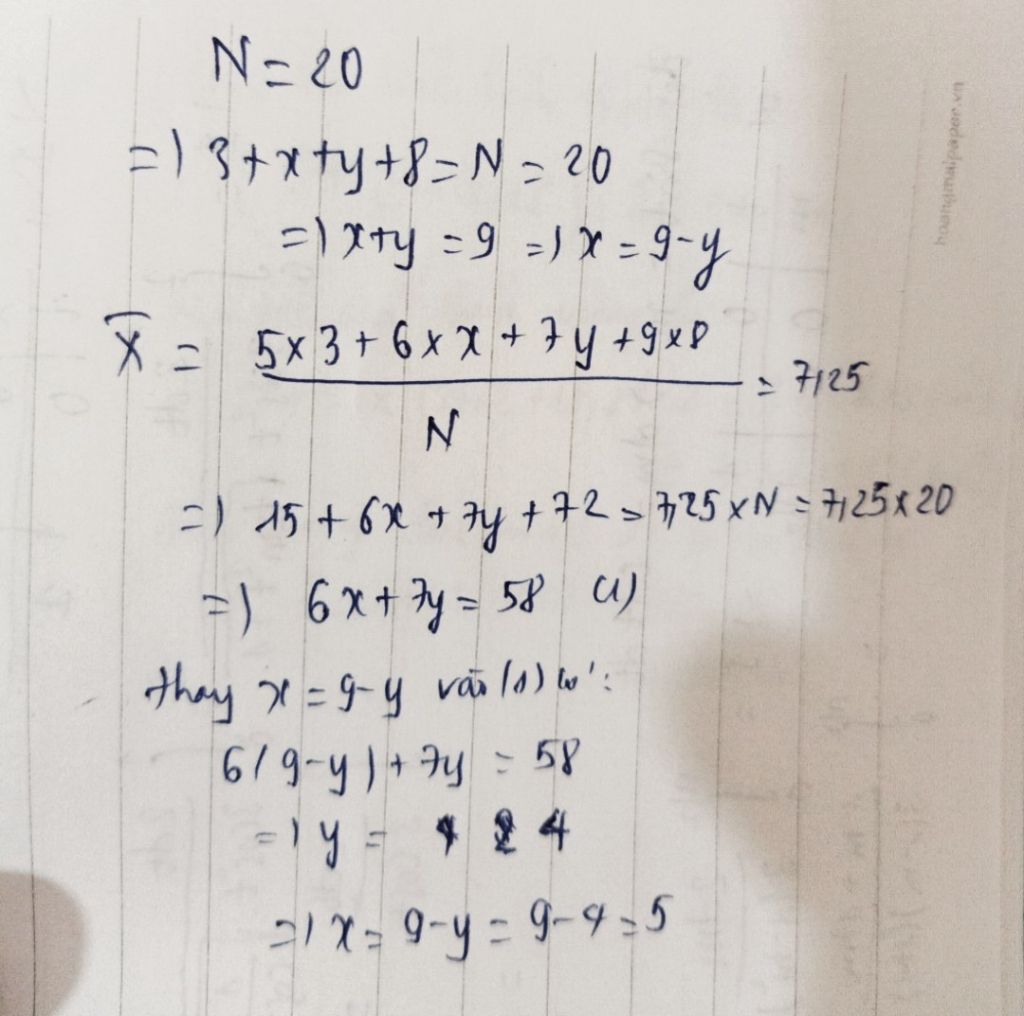 N = 20
=) 3 + x + y + 8 = N = 20
=) x + y = 9 =) x = 9 - y
X̄ = (5 × 3 + 6 × x + 7y + 9 × 8) / N = 7,25
=) 15 + 6x + 7y + 72 = 7,25 × N = 7,25 × 20
=) 6x + 7y = 58 (1)
thay x = 9 - y vào (1) có:
6(9 - y) + 7y = 58
=) y = 4
=) x = 9 - y = 9 - 4 = 5
hoangmaipaper.vn